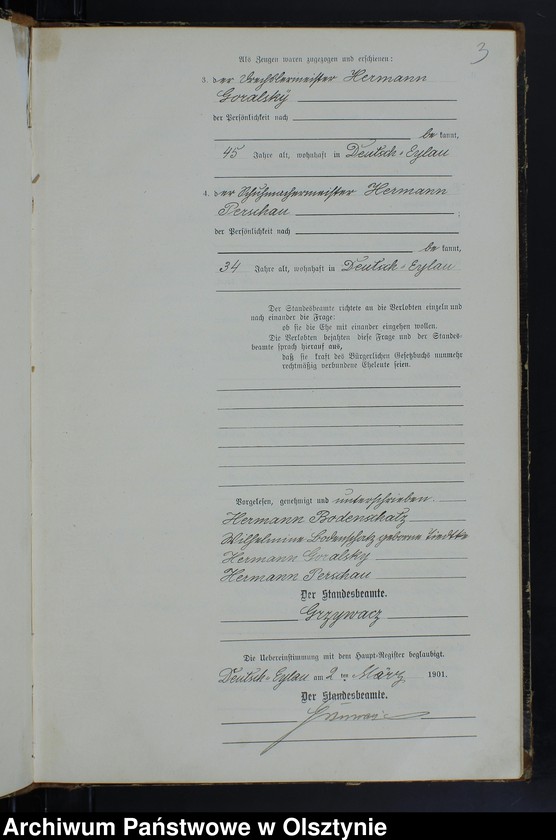 3
Als Zeugen waren zugezogen und erschienen:
3. der Drechslermeister Hermann
Goralsky
der Persönlichkeit nach
be kannt,
45 Jahre alt, wohnhaft in Deutsch-Eylau
4. der Schuhmachermeister Hermann
Perschau ;
der Persönlichkeit nach
be kannt,
34 Jahre alt, wohnhaft in Deutsch-Eylau
Der Standesbeamte richtete an die Verlobten einzeln und
nach einander die Frage:
ob sie die Ehe mit einander eingehen wollen.
Die Verlobten bejahten diese Frage und der Standes-
beamte sprach hierauf aus,
daß sie kraft des Bürgerlichen Gesetzbuchs nunmehr
rechtmäßig verbundene Eheleute seien.
Vorgelesen, genehmigt und unterschrieben.
Hermann Bodenschatz
Wilhelmine Bodenschatz geborne Tiedtke
Hermann Goralsky
Hermann Perschau
Der Standesbeamte.
Grzywacz
Die Uebereinstimmung mit dem Haupt-Register beglaubigt.
Deutsch-Eylau am 2 ten März 1901.
Der Standesbeamte.
Archiwum Państwowe w Olsztynie